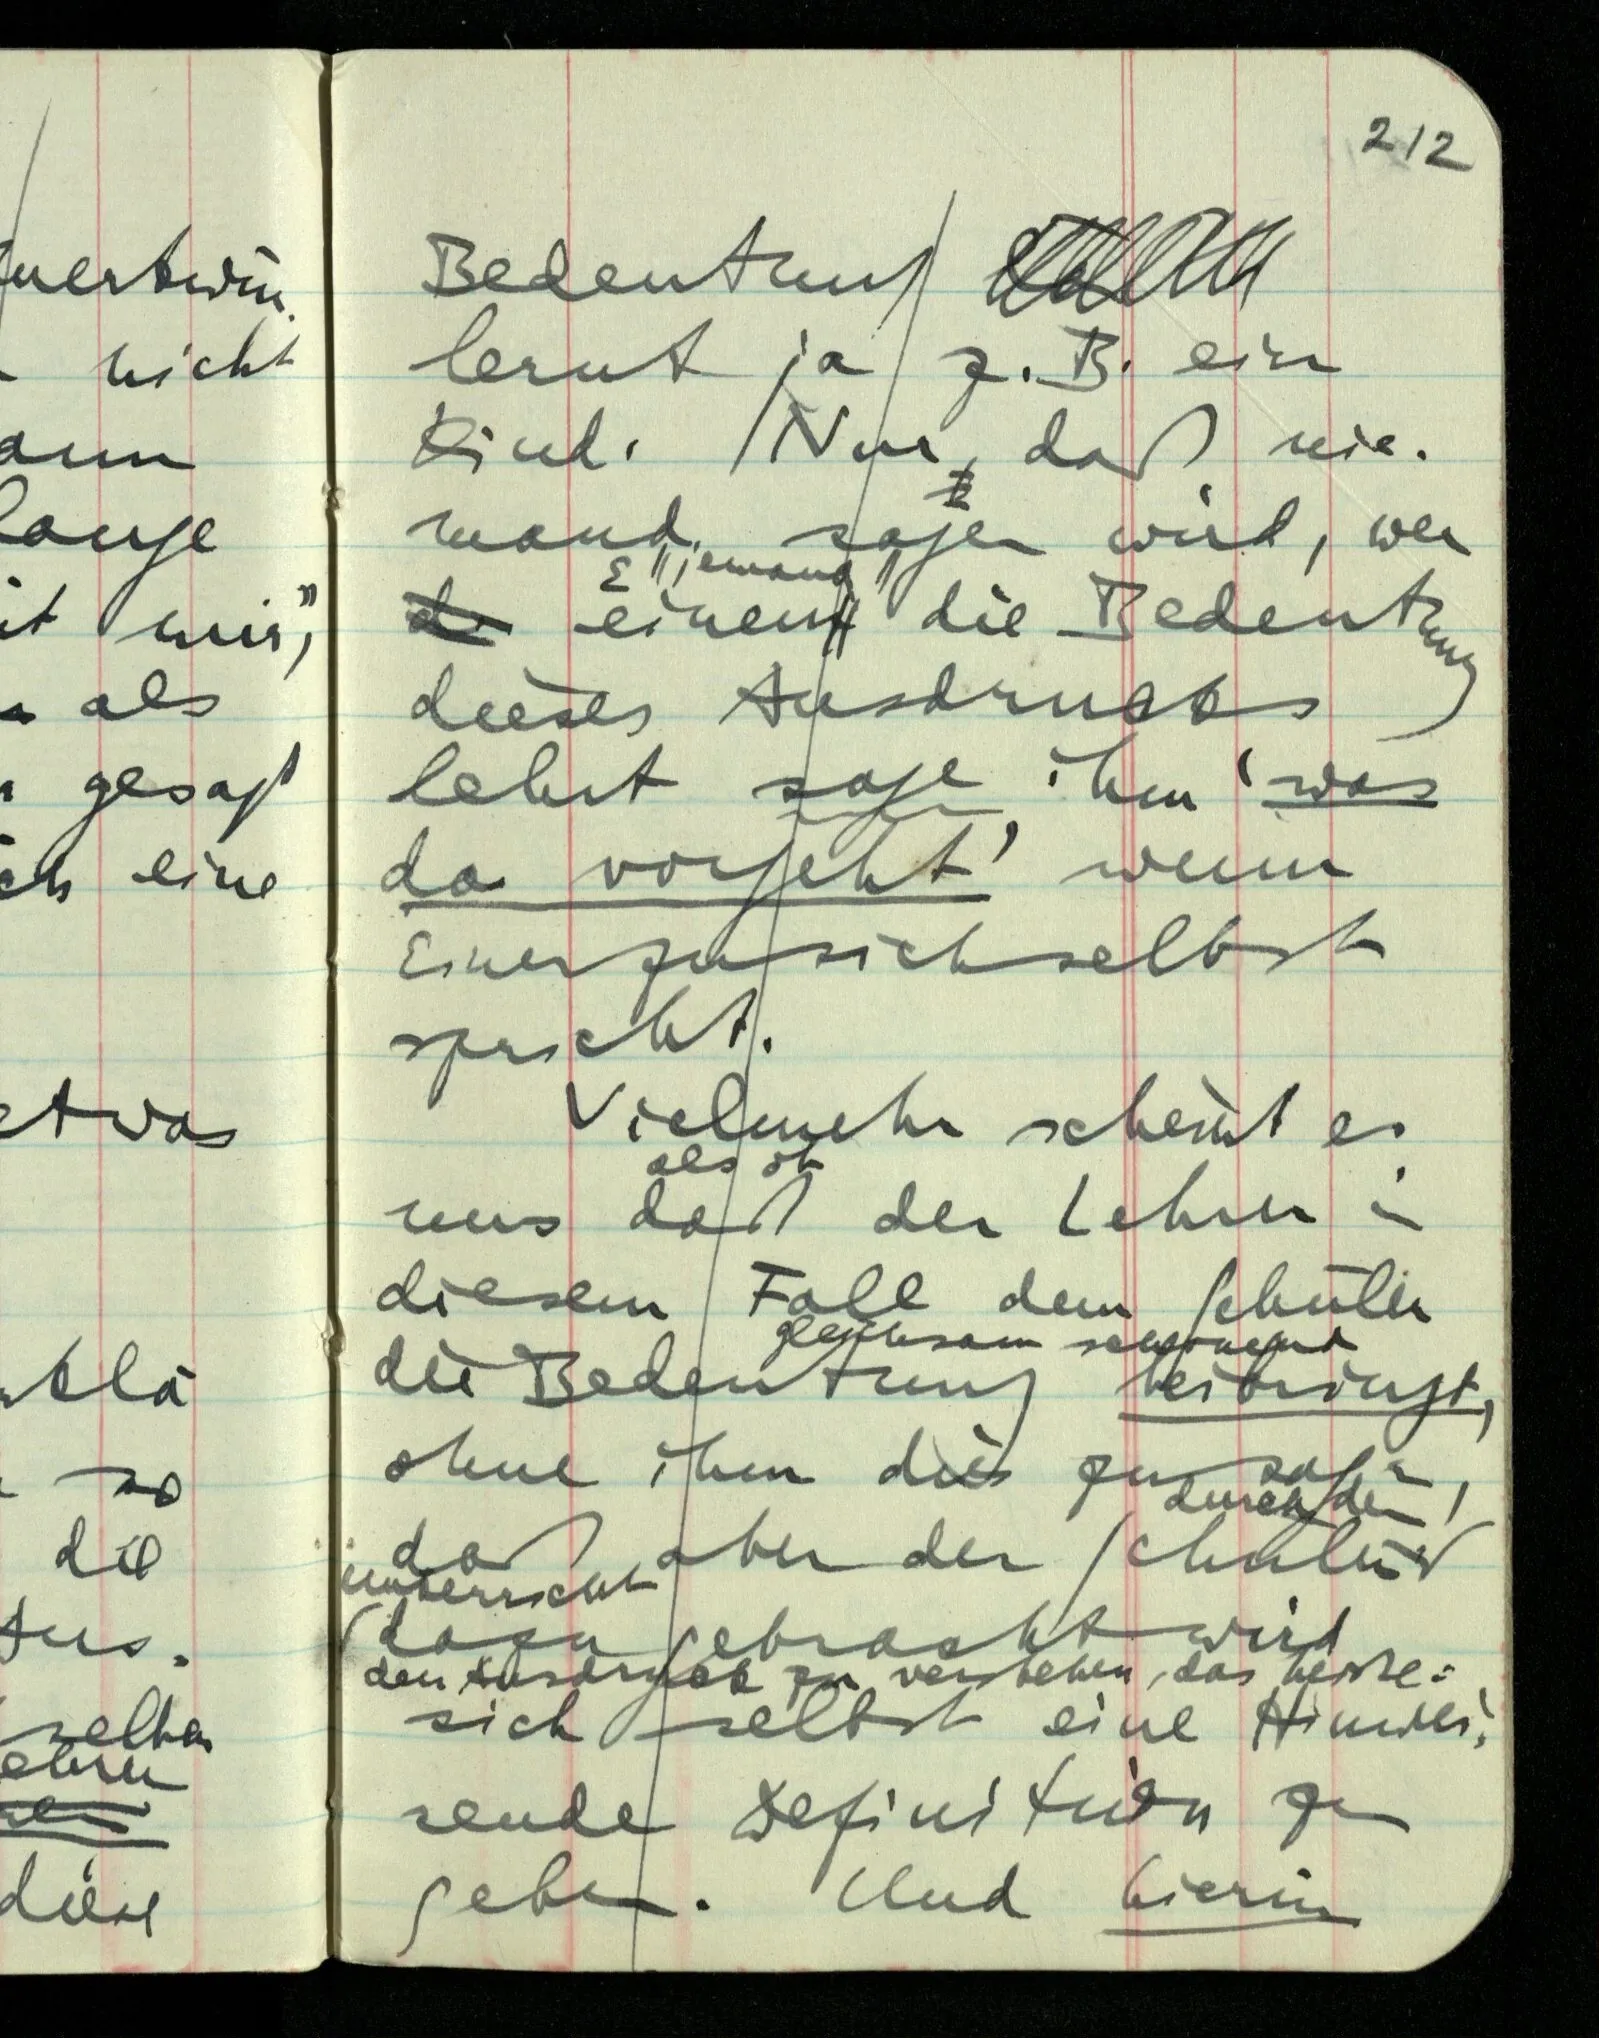 212
Bedeutung
lernt ja z.B. ein
Kind. Nur, daß nie-
mand sagen wird, wer
E "jemand"
de einem die Bedeutung
dieses Ausdrucks
lehrt sage ihm 'was
da vorgeht' wenn
Einer zu sich selbst
spricht.
Vielmehr scheint es
als ob
uns daß der Lehrer in
diesem Fall dem Schüler
gleichsam schweigend
die Bedeutung beibringt,
ohne ihm dies zu sagen,
durch den
daß aber der Schüler
Unterricht
dazu gebracht wird
den Ausdruck zu verstehen, das heiße:
sich selbst eine Hinwei-
sende Definition zu
geben. Und hierin
nicht
lange
it mir",
als
gesagt
eine
etwas
so
die
Aus-
selben
diese